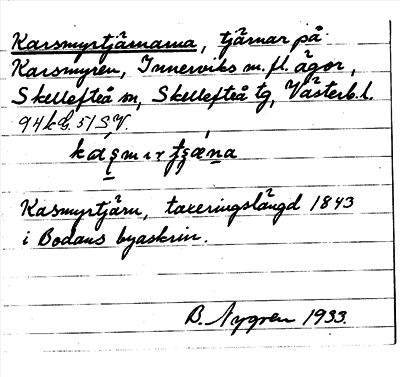 Karsmyrtjärnarna, tjärnar på
Karsmyren, Innerviks m. fl. ägor,
Skellefteå sn, Skellefteå tg, Västerb. l.
94 k G. 51 S V.
Kasmyrtjärn, taxeringslängd 1843
i Bodans byaskrin.
B. Nygren 1933.